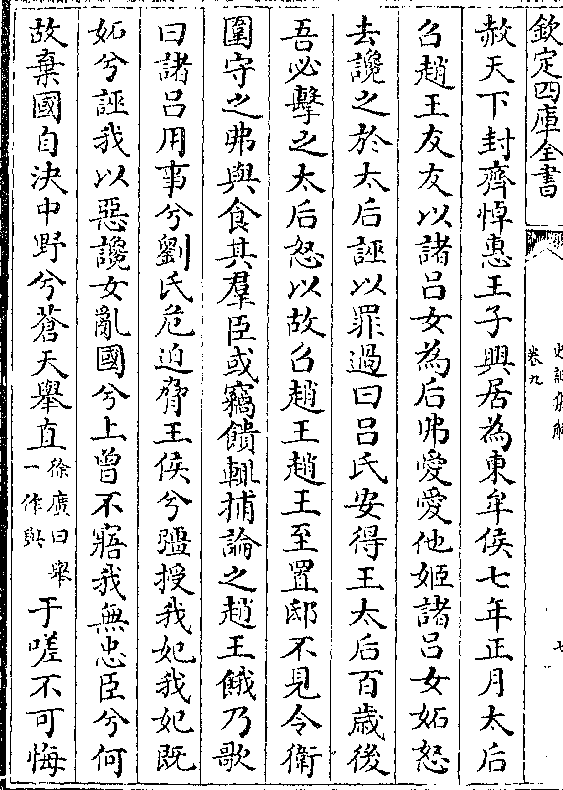 欽定四庫全書
史記集解
卷九
七
赦天下封齊悼惠王子興居為東牟侯七年正月太后
召趙王友友以諸呂女為后弗愛愛他姬諸呂女妬怒
去讒之於太后誣以罪過曰呂氏安得王太后百歲後
吾必擊之太后怒以故召趙王趙王至置邸不見令衛
圍守之弗與食其羣臣或竊饋輒捕論之趙王餓乃歌
曰諸呂用事兮劉氏危迫脅王侯兮彊授我妃我妃既
妬兮誣我以惡讒女亂國兮上曾不寤我無忠臣兮何
故棄國自決中野兮蒼天舉直徐廣曰舉一作與于嗟不可悔